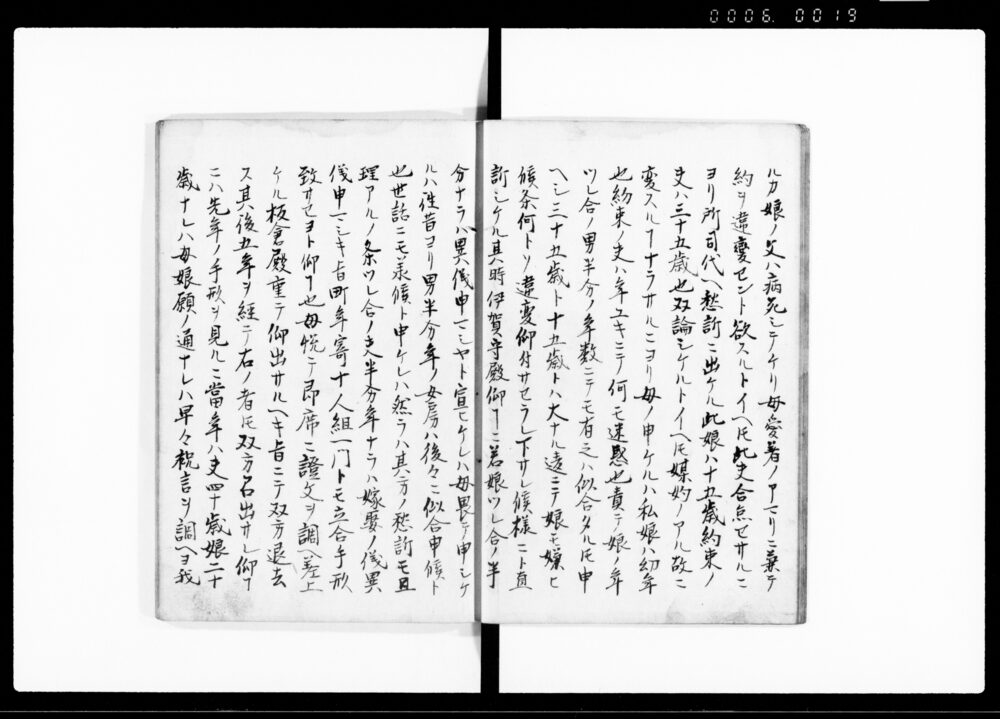 0006. 0019
ルカ娘ノ父ハ病死シテケリ母愛着ノアマリニ兼テ
約ヲ違変セント欲スルトイヘ𪜈此夫合点セサルニ
ヨリ所司代ヘ愁訴ニ出ケル此娘ハ十五歳約束ノ
夫ハ三十五歳也双論シケルトイヘ𪜈媒妁ノアル故ニ
変スルヿナラサルニヨリ母ノ申ケルハ私娘ハ幼年
也約束ノ夫ハ年ユキニテ何モ迷惑也責テノ娘ノ年
ツレ合ノ男半分ノ年数ニテモ有之ハ似合タル𪜈申
ヘシ三十五歳ト十五歳トハ大ナル違ニテ娘モ嫌ヒ
候条何トソ違変仰付サセラレ下サレ候様ニト直
訴シケル其時伊賀守殿仰ヿニ若娘ツレ合ノ半
分ナラハ異儀申マシヤト宣ヒケレハ母畏テ申シケ
ルハ往昔ヨリ男半分年ノ女房ハ後々ニ似合申候ト
也世話ニモ承候ト申ケレハ然ラハ其方ノ愁訴モ且
理アルノ条ツレ合ノ夫半分年ナラハ嫁娶ノ儀異
儀申マシキ旨町年寄十人組一門トモ立合手形
致サセヨト仰ヿ也母悦テ即席ニ證文ヲ調ヘ差上
ケル板倉殿重テ仰出サルヘキ旨ニテ双方退去
ス其後五年ヲ経テ右ノ者𪜈双方召出サレ仰ヿ
ニハ先年ノ手形ヲ見ルニ當年ハ夫四十歳娘二十
歳ナレハ母娘願ノ通ナレハ早々祝言ヲ調ヘヨ我